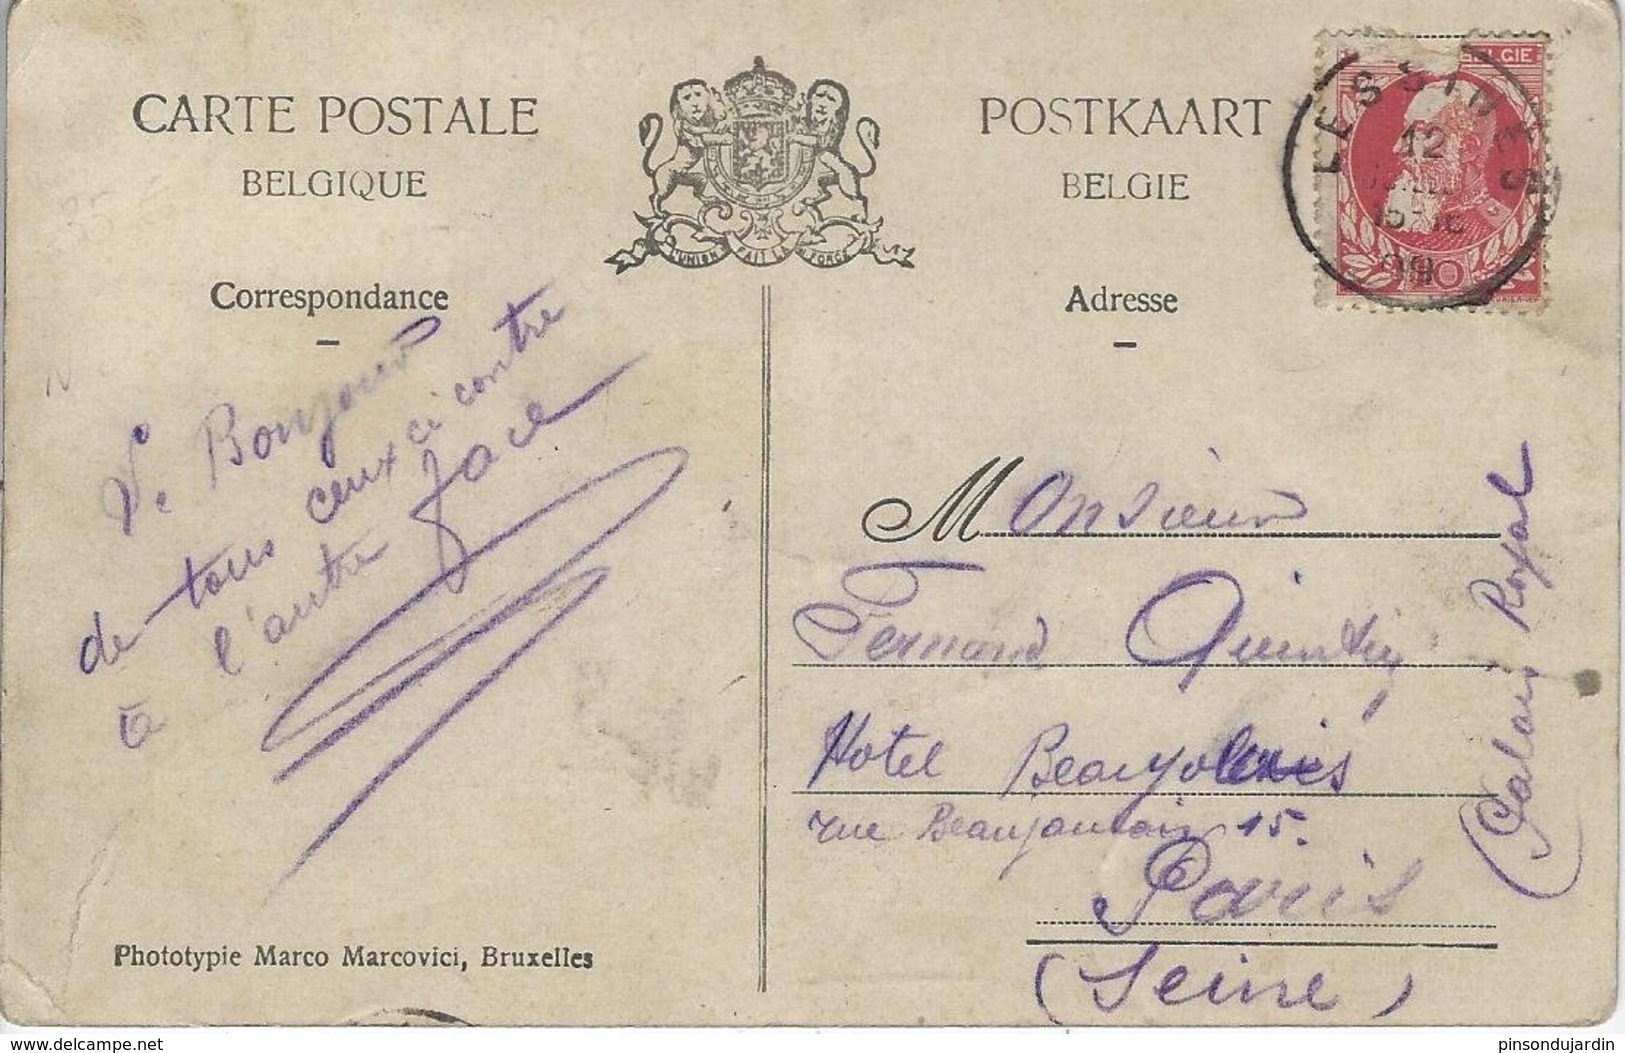 CARTE POSTALE
BELGIQUE
POSTKAART
BELGIE
L'UNION FAIT LA FORCE
BELGIE
LESSINES
12
15-16
09
10
Correspondance
Adresse
Bonjour
de tous ceux ci contre
à l'autre face
Monsieur
Fernand Quintin
Hotel Beaujolais
rue Beaujolais 15.
Paris
(Seine)
(Palais Royal)
Phototypie Marco Marcovici, Bruxelles
delcampe.net
pinsondujardin